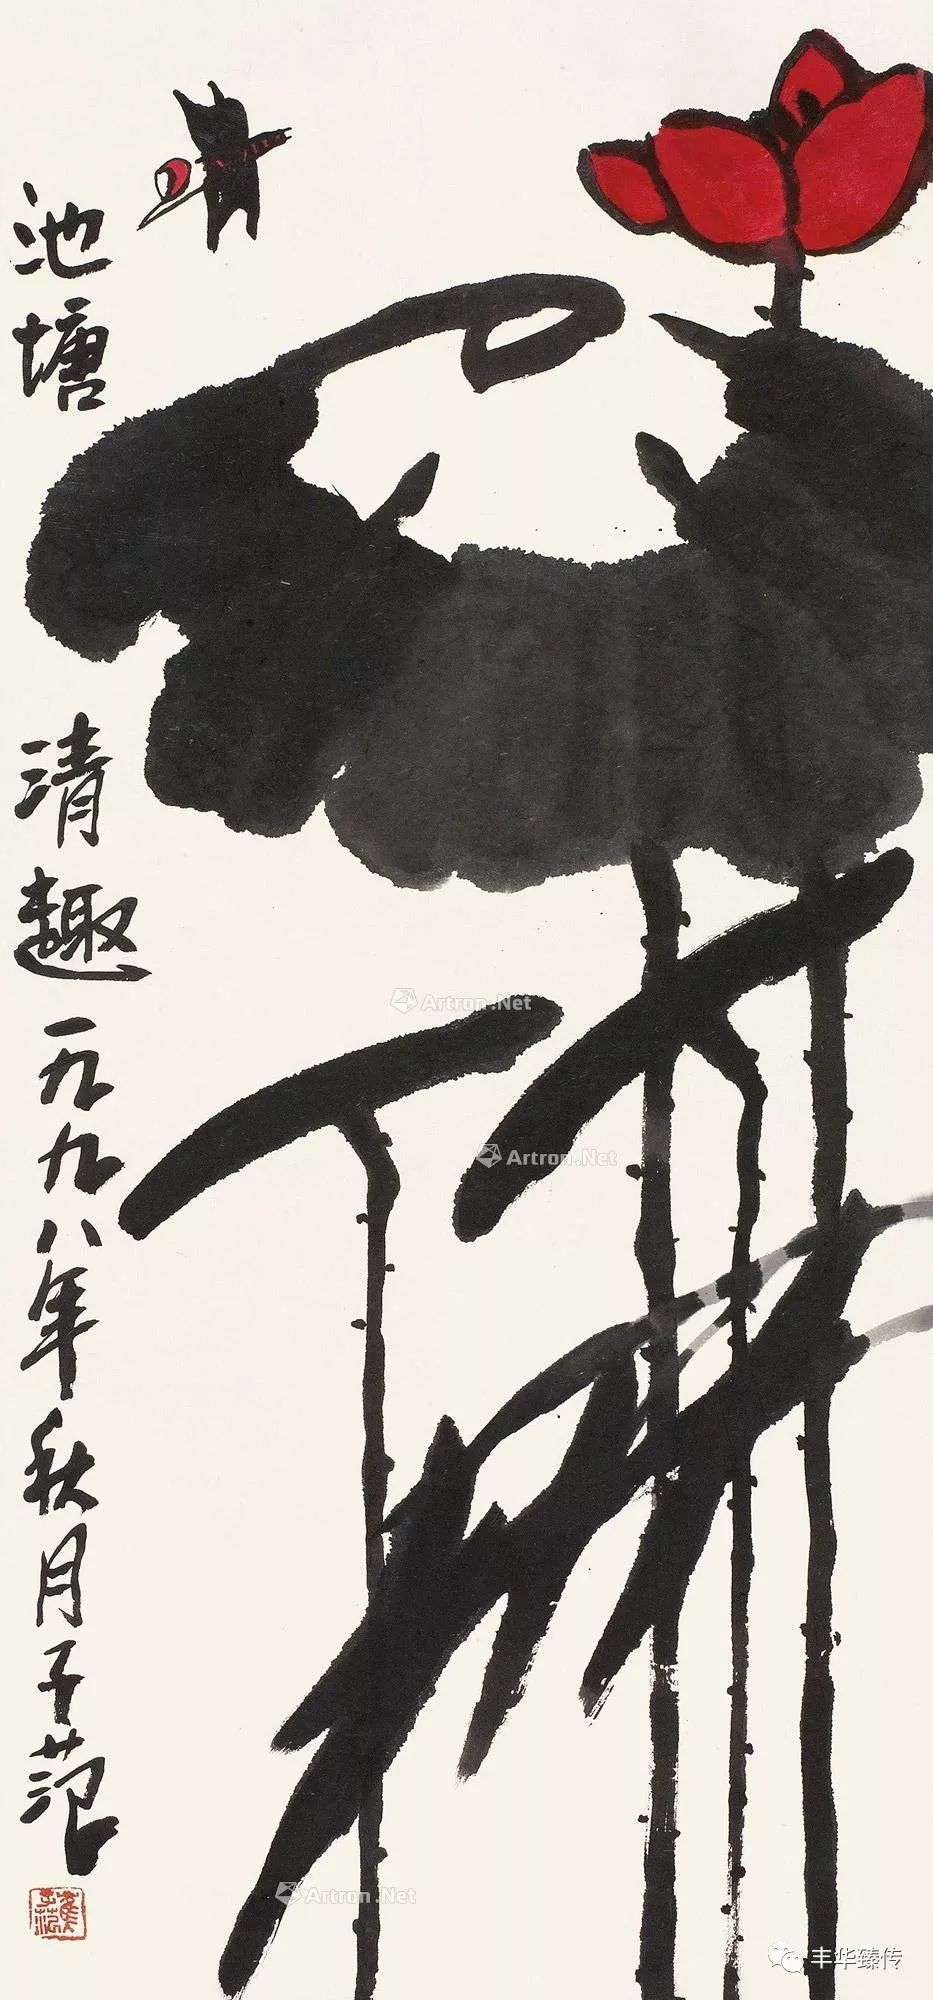 池塘清趣一九九八年秋月子范
Artron.Net
Artron.Net
Artron.Net
丰华臻传